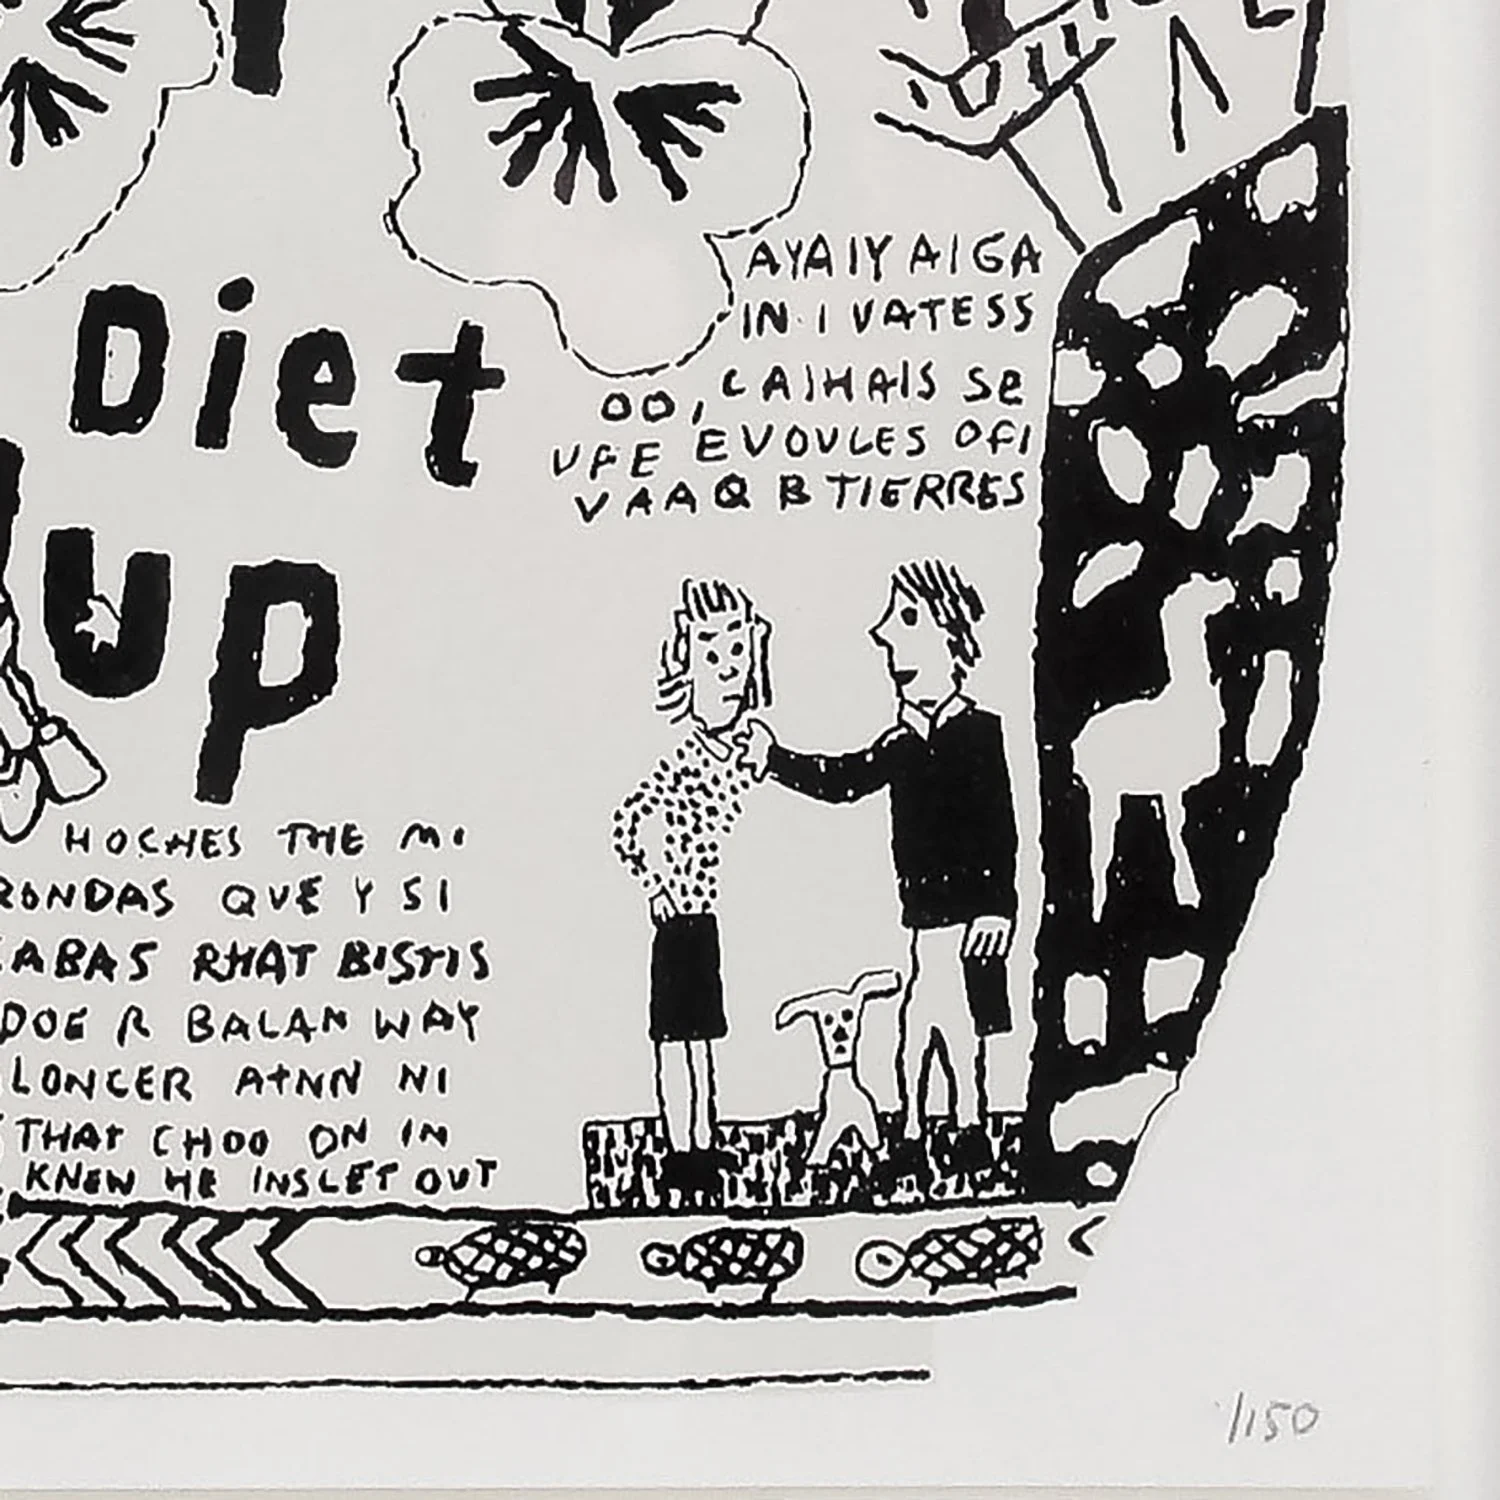 Diet
AYAIY AIGA
IN I VATESS
OO, CAIHAIS Se
VFE EVOVLES OFI
VAAQ B TIERRES
up
HOCHES THE MI
RONDAS QVE Y SI
CABAS RHAT BISTIS
DOE R BALAN WAY
LONCER A+NN NI
THAT CHOO ON IN
KNEW HE INSLET OUT
/150